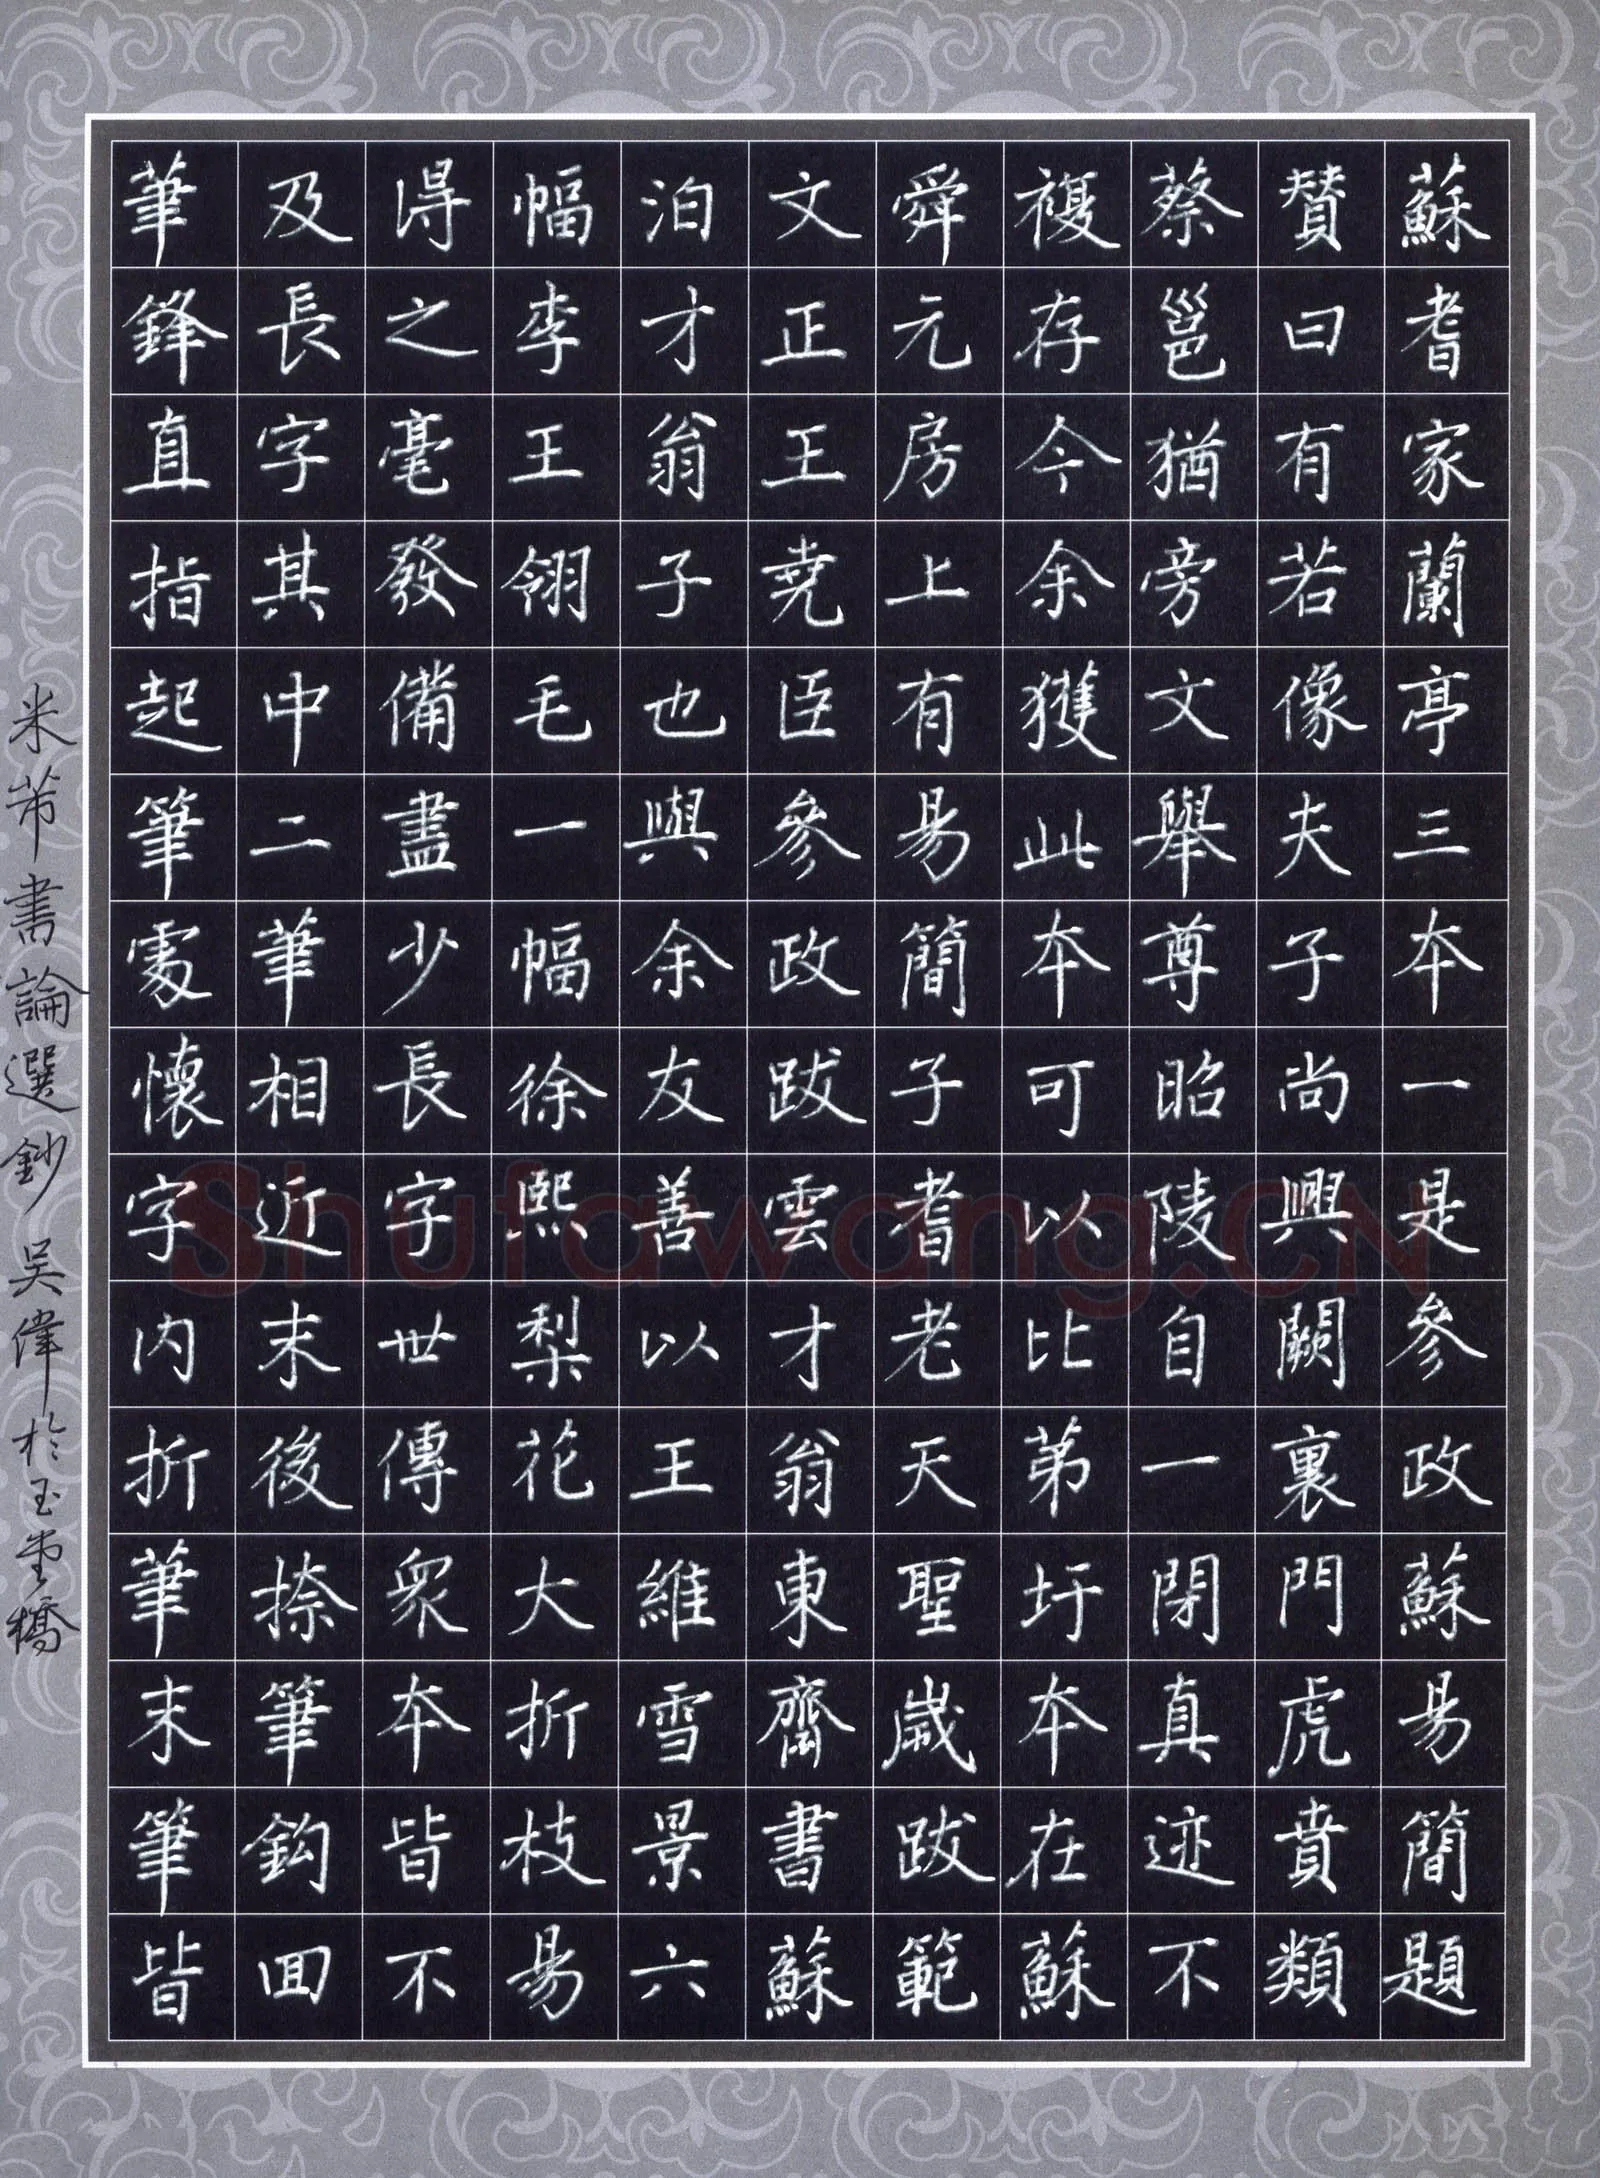 蘇耆家蘭亭三本一是參政蘇易簡題
贊曰有若像夫子尚興闕裏門虎賁類
蔡邕猶旁文舉尊昭陵自一閉真迹不
複存今余獲此本可以比第圩本在蘇
舜元房上有易簡子耆老天聖歲跋範
文正王堯臣參政跋雲才翁東齋書蘇
泊才翁子也與余友善以王維雪景六
幅李王翎毛一幅徐熙梨花大折枝易
得之毫發備盡少長字世傳眾本皆不
及長字其中二筆相近末後捺筆鈎回
筆鋒直指起筆處懷字內折筆末筆皆
米芾書論選鈔吳偉於玉堂橋
Shufawang.CN